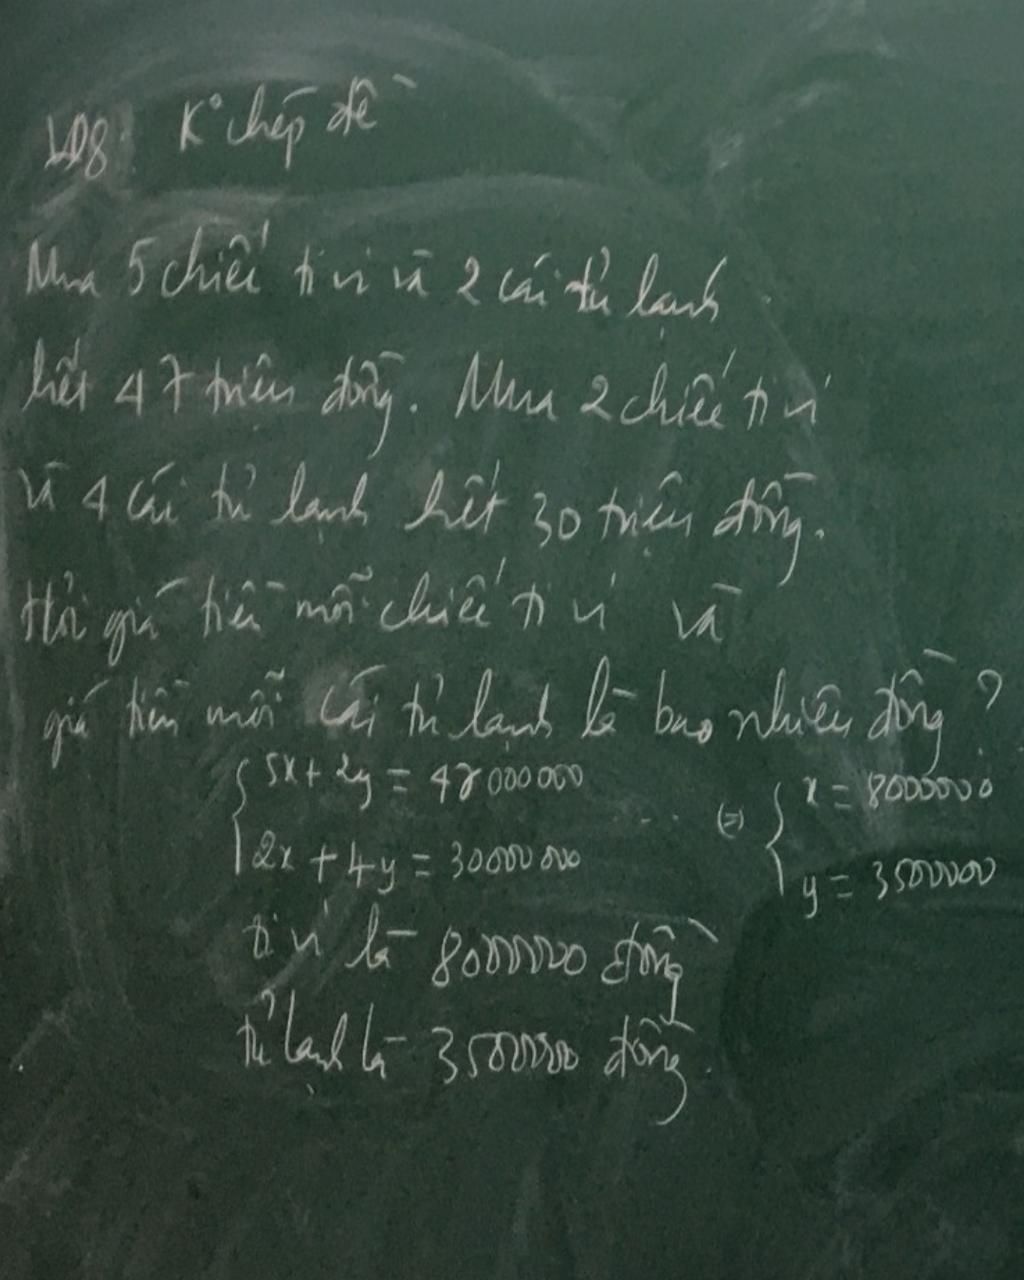 LD8: K° chép đề
Mua 5 chiếc ti vi và 2 cái tủ lạnh
hết 47 triệu đồng. Mua 2 chiếc ti vi
và 4 cái tủ lạnh hết 30 triệu đồng.
Hỏi giá tiền mỗi chiếc ti vi và
giá tiền mỗi cái tủ lạnh là bao nhiêu đồng?
5x + 2y = 47000000
2x + 4y = 30000000
... (=) x = 8000000
y = 3500000
ti vi là 8000000 đồng
tủ lạnh là 3500000 đồng.